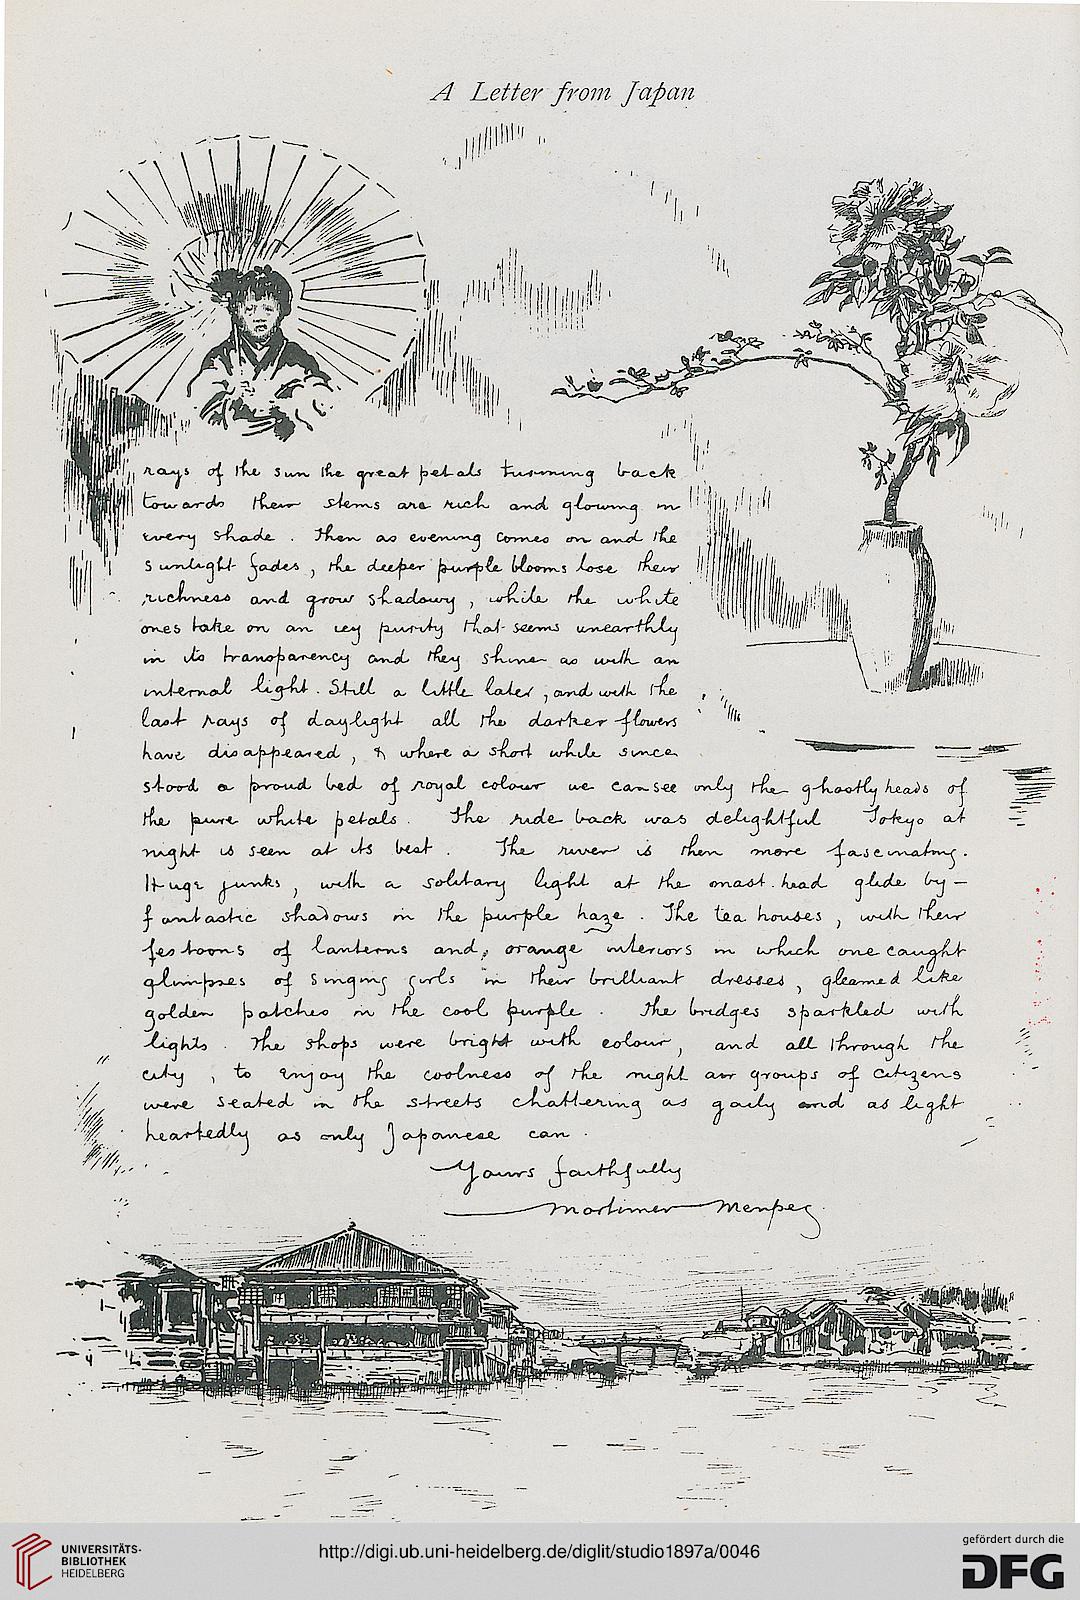 A Letter from Japan
rays of the sun the great petals turning back
towards their stems are rich and glowing in
every shade. Then as evening comes on and the
sunlight fades, the deeper purple blooms lose their
richness and grow shadowy, while the white
ones take on an icy purity that seems unearthly
in its transparency and they shine as with an
internal light. Still a little later, and with the
last rays of daylight all the darker flowers
have disappeared, & where a short while since
stood a proud bed of royal colour we can see only the ghostly heads of
the pure white petals. The ride back was delightful Tokyo at
night is seen at its best. The river is then more fascinating.
Huge junks, with a solitary light at the mast head glide by –
fantastic shadows in the purple haze. The tea houses, with their
festoons of lanterns and, orange interiors in which one caught
glimpses of singing girls in their brilliant dresses, gleamed like
golden patches in the cool purple. The bridges sparkled with
lights. The shops were bright with colour, and all through the
city, to enjoy the coolness of the night air groups of citizens
were seated in the streets chattering as gaily and as light
heartedly as only Japanese can.
Yours faithfully
Mortimer Menpes
UNIVERSITÄTS-
BIBLIOTHEK
HEIDELBERG
http://digi.ub.uni-heidelberg.de/diglit/studio1897a/0046
gefördert durch die
DFG